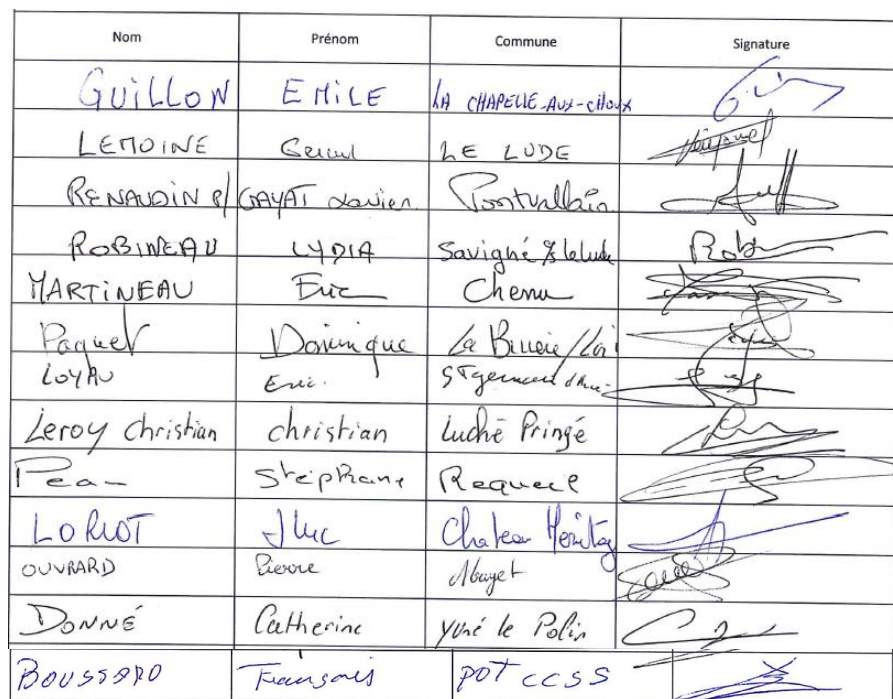 Nom Prénom Commune Signature
GUILLON EMILE LA CHAPELLE-AUX-CHOUX
LEMOINE Gerard LE LUDE
RENAUDIN p/ GAYAT Xavier Pontvallain
ROBINEAU LYDIA Savigné s/s le lude
MARTINEAU Eric Chenu
Paquet Dominique La Bruère/Loir
LOYAU Eric. St germain d'Arcé
Leroy Christian christian Luché Pringé
Pean Stéphane Requeil
LORIOT JLuc Chateau Hermitage
OUVRARD Pierre Mayet
DONNÉ Catherine Yvré le Polin
BOUSSARD François POT CCSS